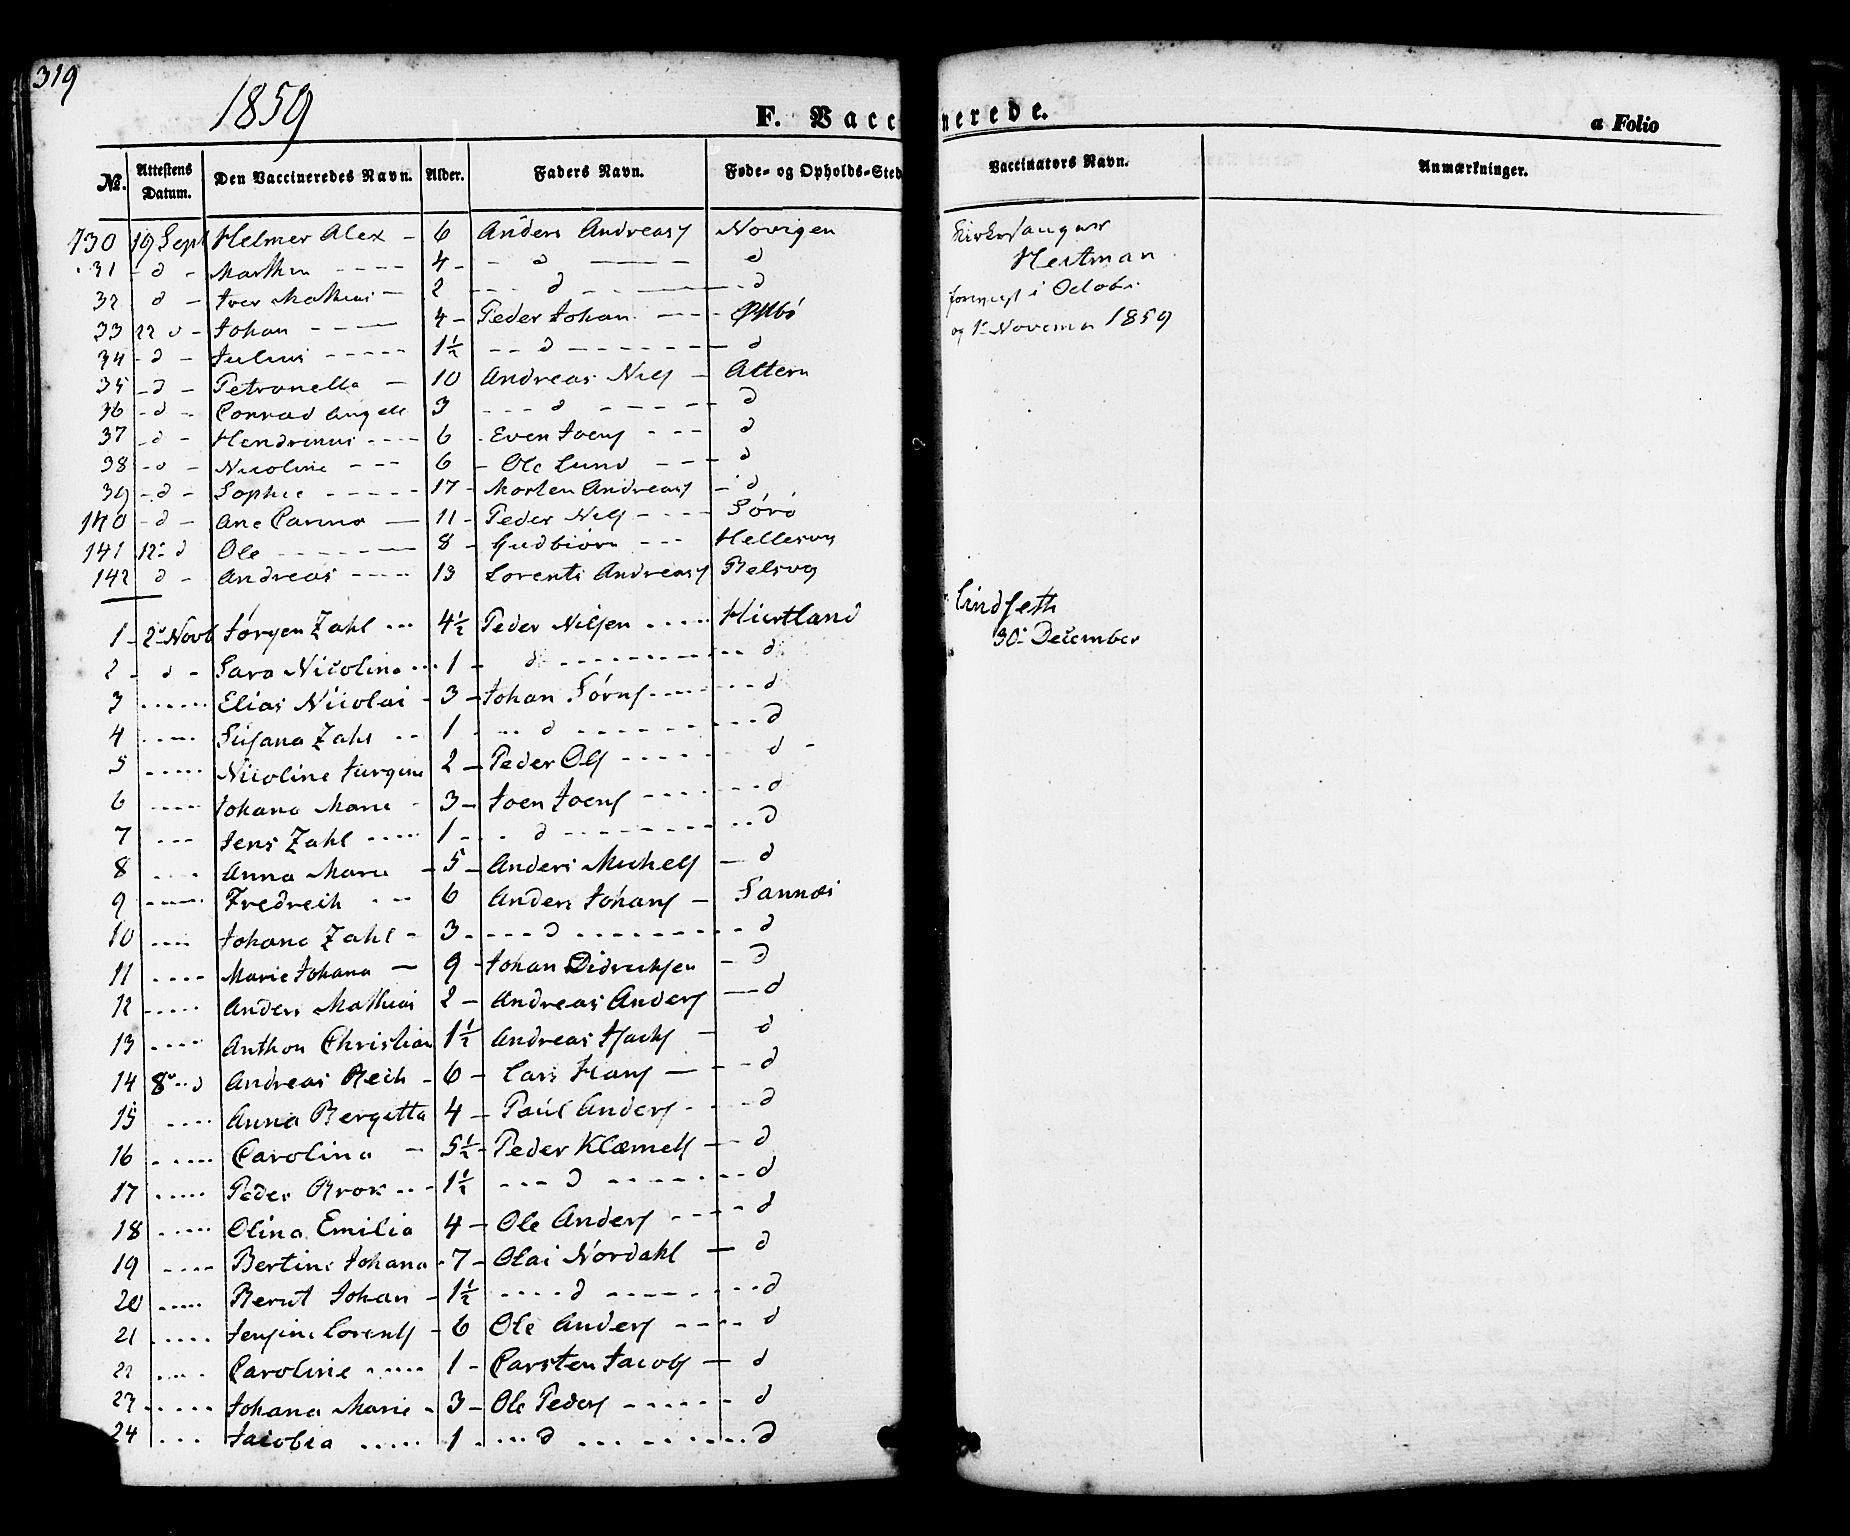 319
1859
F. Vaccinerede.
a Folio
№. Attestens Datum. Den Vaccineredes Navn. Alder. Faders Navn. Føde- og Opholds-Sted Vaccinators Navn. Anmærkninger.
130 19 Sept Helmer Alex - 6 Anders Andreasf Novigen
31 - d - Marthin ---- 4 - - d ---- d
32 d - Iver Mathias - 2 --- d ---- d
33 22 d - Johan ---- 4 - Peder Johan ----
34 - d - Julius ----- 1½ -- d ------ d
35 - d - Petronella - 10 Andreas Nilf - Altern
36 - d - Conrad Angell 3 --- d ---- d
37 - d - Hendrinus ---- 6 - Even Joenf --- d
38 - d - Nicoline --- 6 - Ole Lund --- d
39 - d - Sophie ----- 17 - Morten Andreasf - d
140 - d - Ane Carina - 11 - Peder Nilf ---- Sörö
141 12- d Ole ----- 8 - Gudbiörn --- Hellesvg
142 d - Andreas ---- 13 Lorents Andreasf Relsvg
Kirkesanger
Hertman
i October
og 1- Novemer 1859
1 - 2- Novb Jørgen Zahl ... 4½ Peder Nilsen ..... Hiertland
2 - d - Sara Nicolina ... 1 - d ------ d
3 ...... Elias Nicolai - 3 - Johan Sörnf ------ d
4 ..... Susana Zahl .. 1 - .. d ------ d
5 ..... Nicoline Jurgine 2 - Peder Olf ----- d -
6 ..... Johana Marie - 3 - Joen Joenf ------ d
7 ... Jens Zahl ..... 1 - . d -------- d
8 .... Anna Marie - 5 - Anders Michelf - d
9 ----- Fredreich . -- 6 Anders Johanf - Sannes
10 .... Johane Zahl - 3 ---- d -------- d
11 .... Marie Johana - 9 - Johan Didrichsen - d
12 ..... Anders Mathias 2 - Andreas Andersf - d
13 .... Anthon Christian 1½ Andreas - d
14 8- .. d Andreas Rech - 6 - Lars Hansf --- d
15 .... Anna Bergetta 4 - Paul Andersf ---- d
16 ...... Carolina - 5½ - Peder Klæmetf - d
17 ..... Peder Brox .. - 1½ --- d ------ d
18 ..... Olina Emilia 4 - Ole Andersf ----- d
19 .... Bertine Johana - 7 - Olai Nordahl - d
20 ..... Bernt Johan - 1½ .... d -------- d
21 ..... Jensine Lorentsf - 6 Ole Andersf ---- d
22 ..... Caroline ...... 1 - Carsten Jacobf - d
23 ..... Johana Marie - 3 - Ole Pedersf ------ d
24 ... Jacobia ..... 1 - ... d ... ------ d
Lindseth
30- December